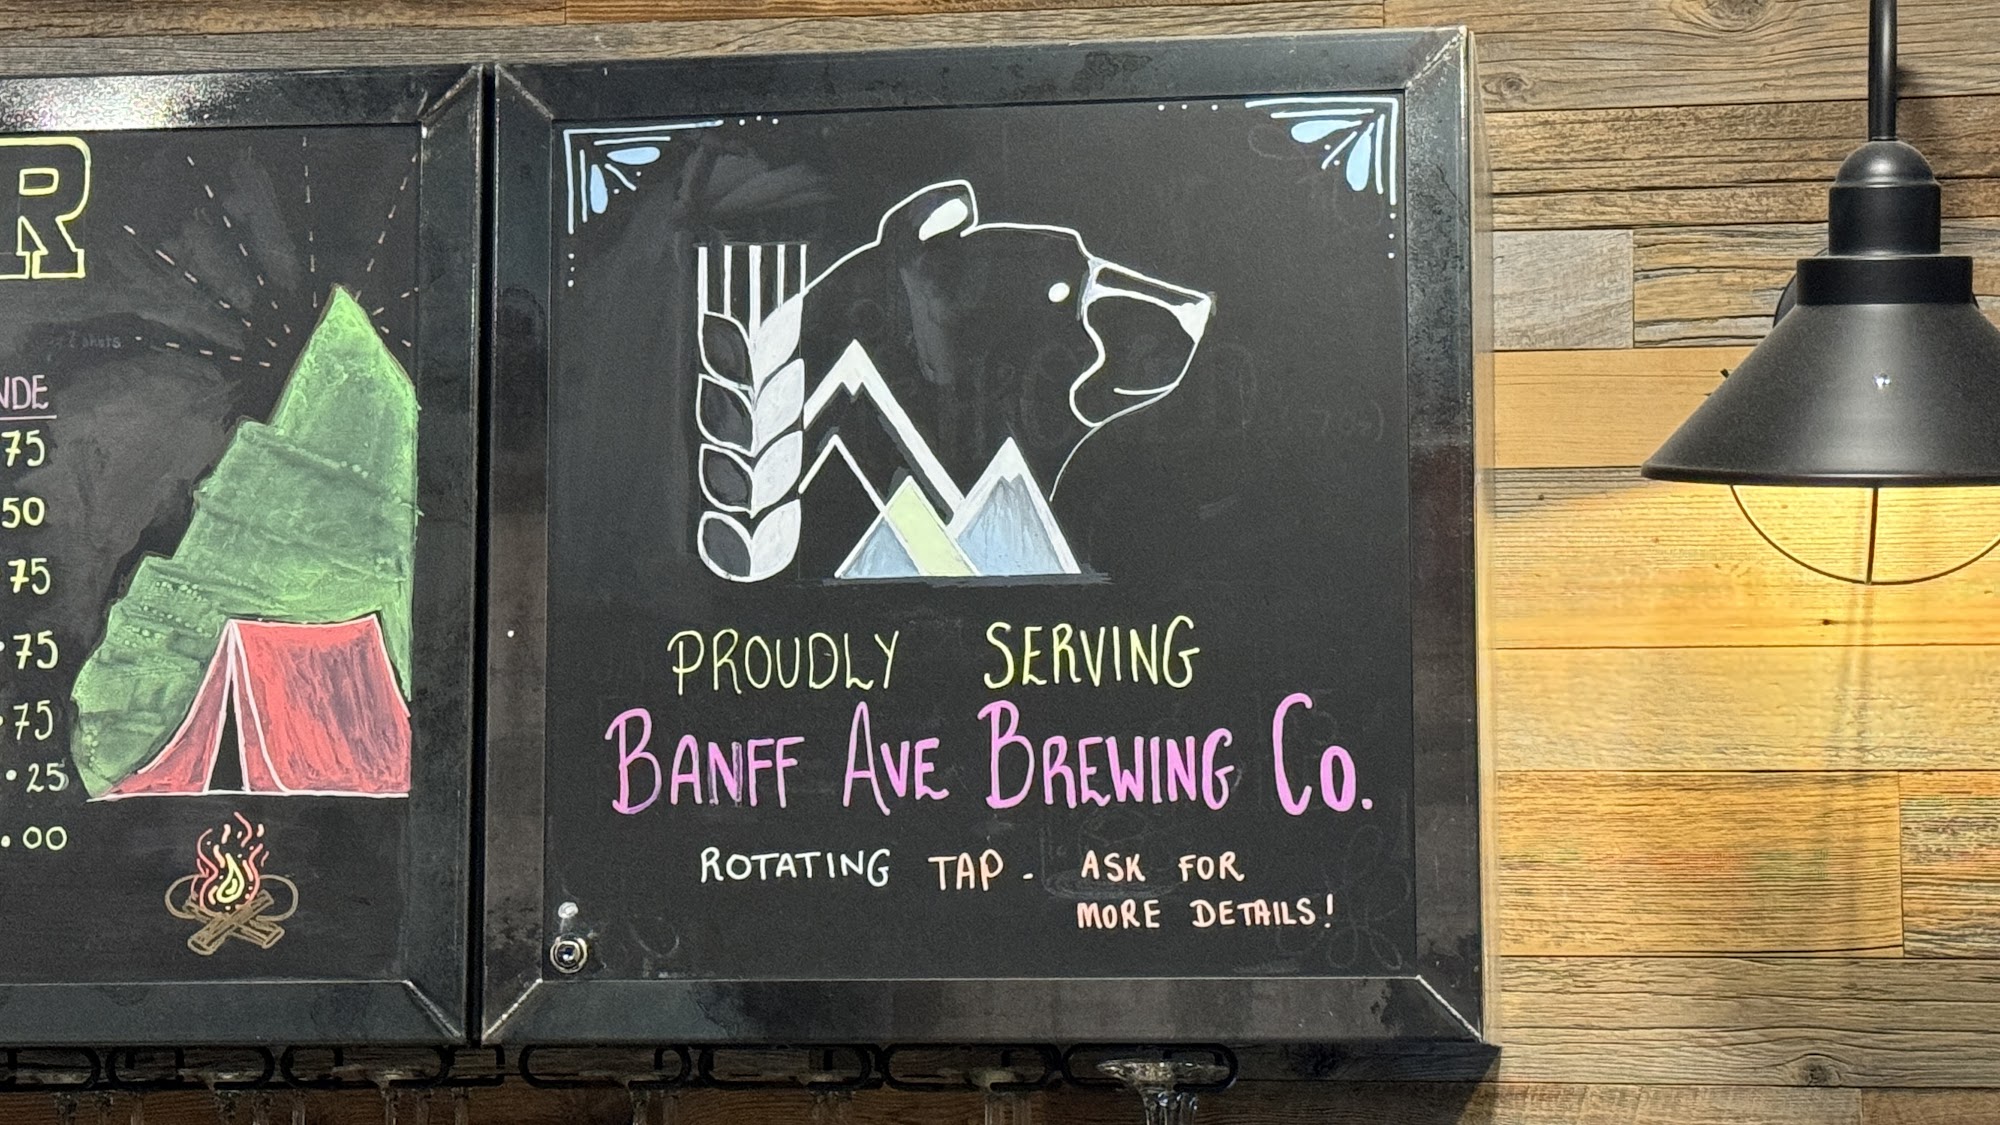 R
NDE
75
50
75
.75
.75
.25
.00
PROUDLY SERVING
BANFF AVE BREWING CO.
ROTATING TAP - ASK FOR
MORE DETAILS!